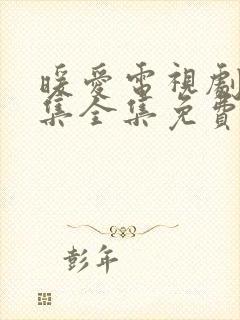 暖愛電視劇
集全集免費
彭年